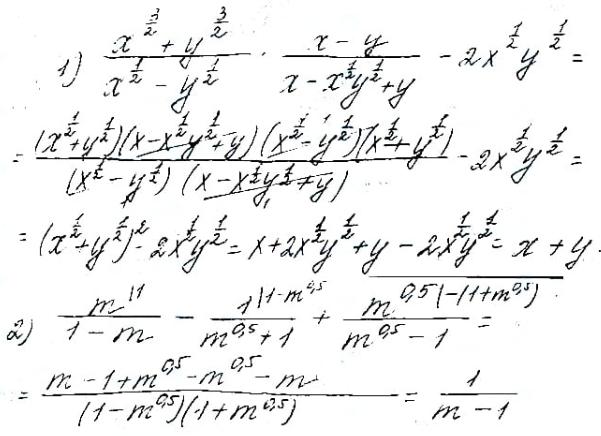 1) (x^{3/2} + y^{3/2})/(x^{1/2} - y^{1/2}) · (x - y)/(x - x^{1/2}y^{1/2} + y) - 2x^{1/2}y^{1/2} =
= ((x^{1/2} + y^{1/2})(x - x^{1/2}y^{1/2} + y)(x^{1/2} - y^{1/2})(x^{1/2} + y^{1/2}))/((x^{1/2} - y^{1/2})(x - x^{1/2}y^{1/2} + y)) - 2x^{1/2}y^{1/2} =
= (x^{1/2} + y^{1/2})^2 - 2x^{1/2}y^{1/2} = x + 2x^{1/2}y^{1/2} + y - 2x^{1/2}y^{1/2} = x + y.
2) m^{|1}/(1 - m) - 1^{|1-m^{0,5}}/(m^{0,5} + 1) + m^{0,5 |-(1+m^{0,5})}/(m^{0,5} - 1) =
= (m - 1 + m^{0,5} - m^{0,5} - m)/((1 - m^{0,5})(1 + m^{0,5})) = 1/(m - 1)